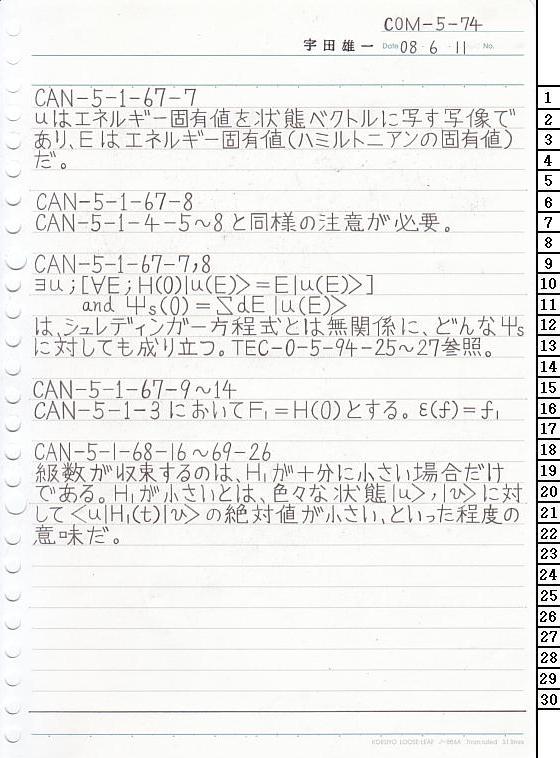 COM-5-74
宇田雄一 Date 08・6・11 No.
CAN-5-1-67-7
uはエネルギー固有値を状態ベクトルに写す写像で
あり、Eはエネルギー固有値(ハミルトニアンの固有値)
だ。
CAN-5-1-67-8
CAN-5-1-4-5～8と同様の注意が必要。
CAN-5-1-67-7,8
∃u;[∀E;H(0)|u(E)>=E|u(E)>]
and Ψs(0)=∑dE|u(E)>
は、シュレディンガー方程式とは無関係に、どんなΨs
に対しても成り立つ。TEC-0-5-94-25～27参照。
CAN-5-1-67-9～14
CAN-5-1-3においてF₁=H(0)とする。ε(f)=f₁
CAN-5-1-68-16～69-26
級数が収束するのは、H₁が十分に小さい場合だけ
である。H₁が小さいとは、色々な状態|u>,|v>に対
して<u|H₁(t)|v>の絶対値が小さい、といった程度の
意味だ。
1
2
3
4
5
6
7
8
9
10
11
12
13
14
15
16
17
18
19
20
21
22
23
24
25
26
27
28
29
30
KOKUYO LOOSE-LEAF ノ-836A 7mm ruled 31 lines